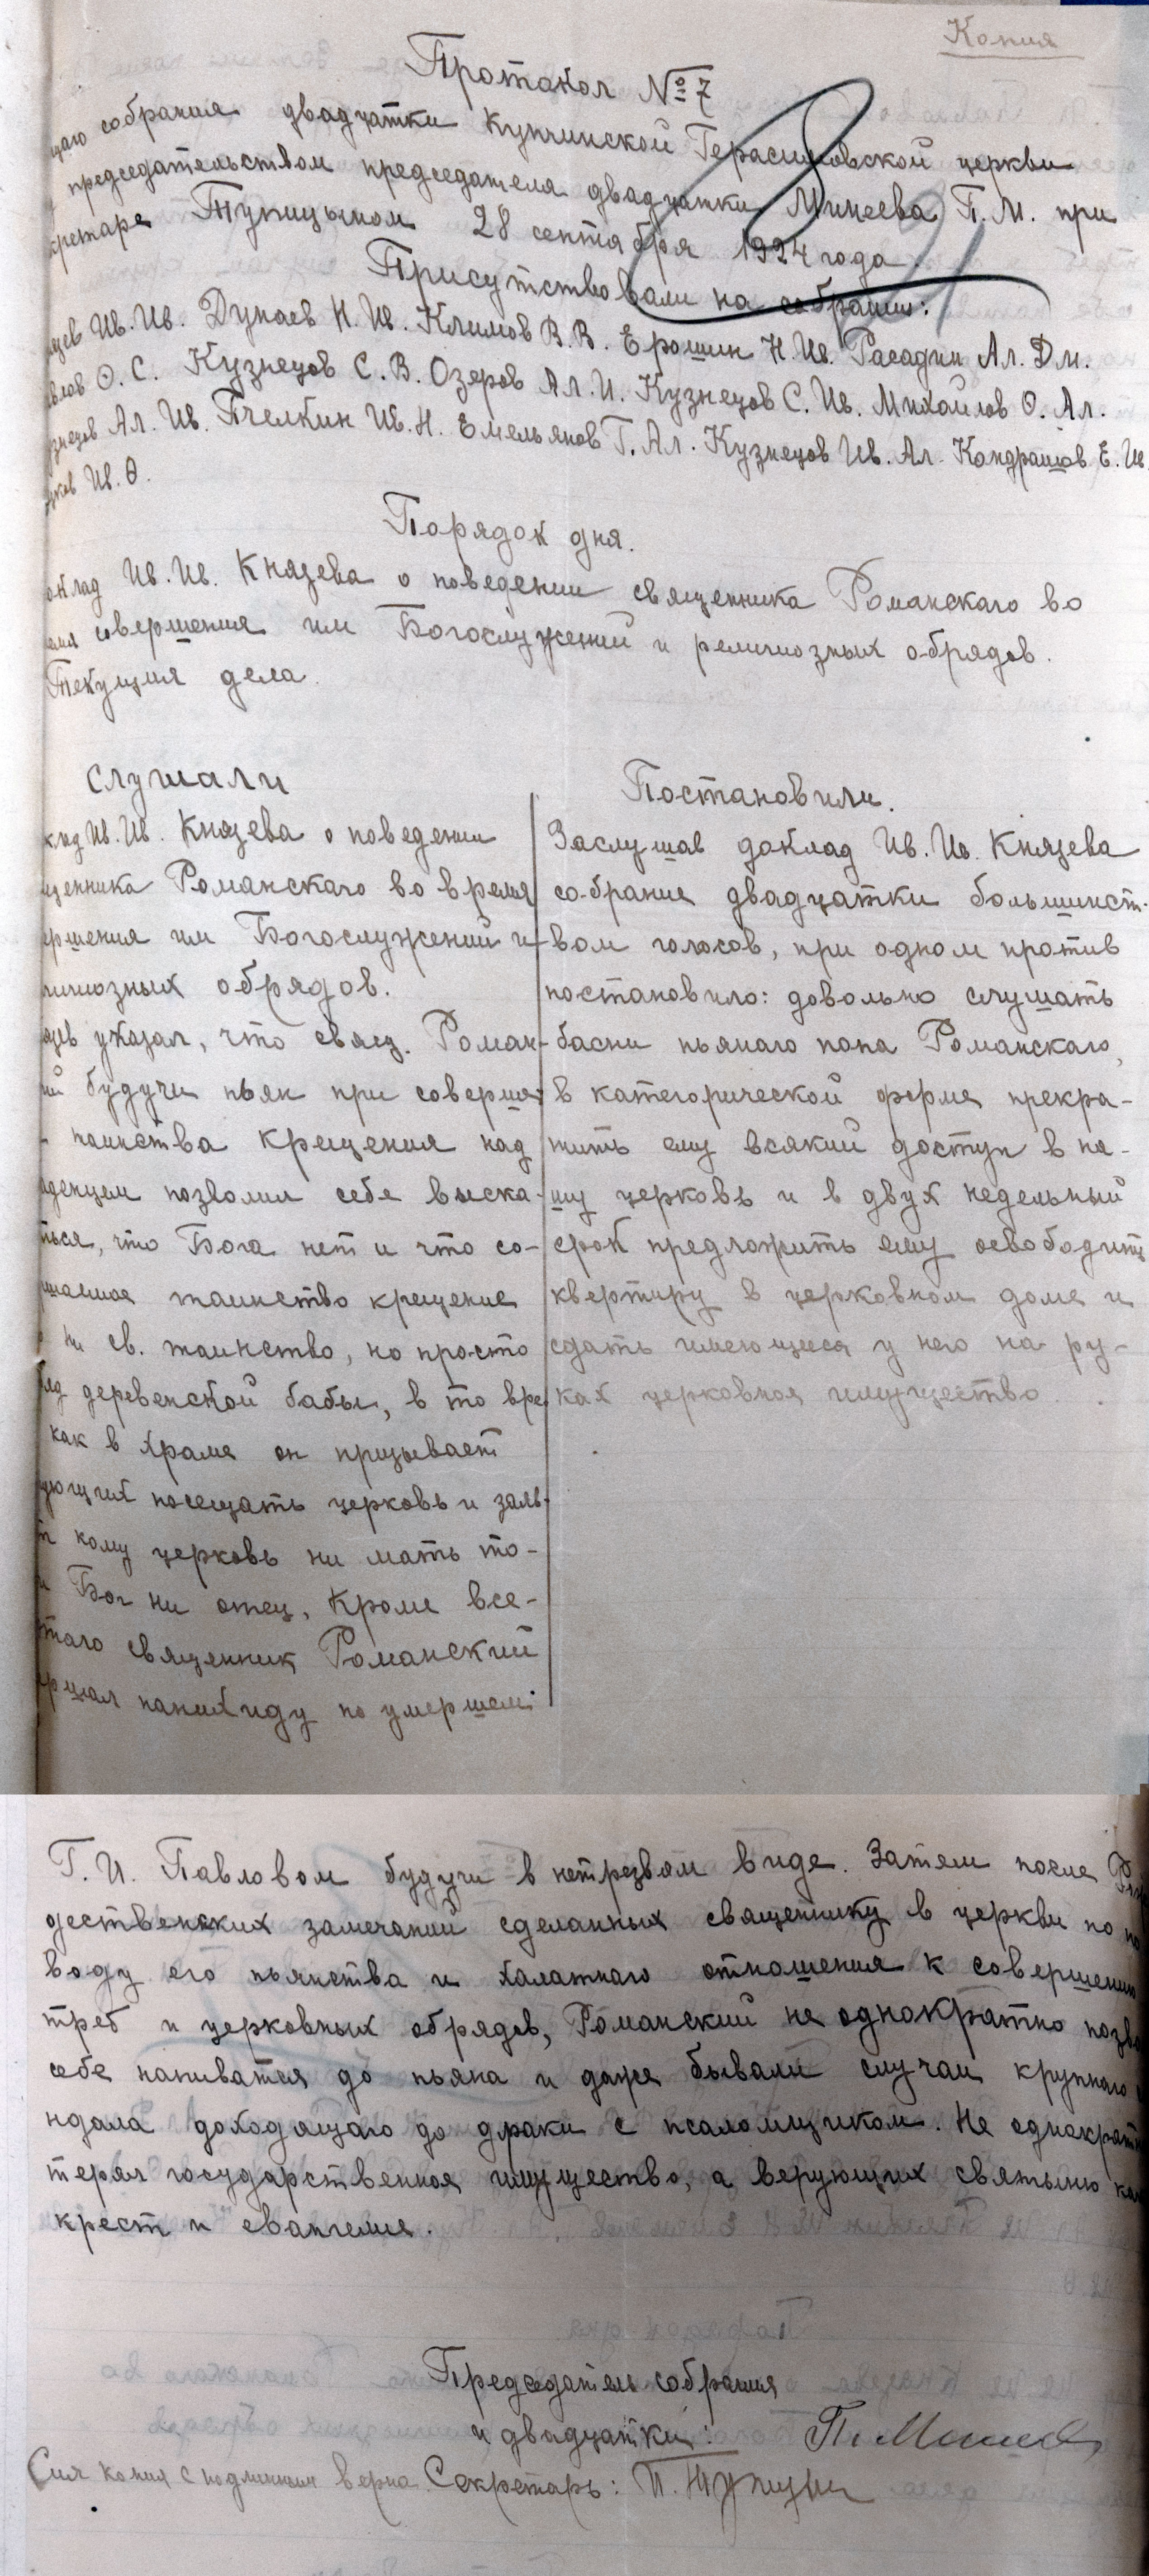 Копия
Протокол № 7
щаго собрания двадцатки Купчинской Герасимовской церкви
председательством председателя двадцатки Минеева П. М. при
кретаре Тупицыном 28 сентября 1924 года.
Присутствовали на собрании:
язев Ив. Ив. Дунаев Н. Ив. Климов В. В. Ерошин Н. Ив. Расадин Ал. Дм.
влов Ѳ. С. Кузнецов С. В. Озеров Ал. И. Кузнецов С. Ив. Михайлов Ѳ. Ал.
узнецов Ал. Ив. Пчелкин Ив. Н. Емельянов Г. Ал. Кузнецов Ив. Ал. Кондрашов Е. Ив.
Ив. Ѳ.
Порядок дня.
оклад Ив. Ив. Князева о поведении священника Романскаго во
емя совершения им Богослужений и религиозных обрядов.
Текущия дела.
Слушали
клад Ив. Ив. Князева о поведении
щенника Романскаго во время
ершения им Богослужений и
лигиозных обрядов.
язев указал, что свящ. Роман-
ий будучи пьян при соверше
таинства крещения над
аденцем позволил себе выска-
ться, что Бога нет и что со-
ршаемое таинство крещение
о ни св. таинство, но просто
ряд деревенской бабы, в то вре
как в храме он призывает
ующих посещать церковь и заяв-
т кому церковь ни мать то-
и Бог ни отец, Кроме все-
этаго священник Романский
ершал панихиду по умершем:
Постановили.
Заслушав доклад Ив. Ив. Князева
собрание двадцатки большинст-
вом голосов, при одном против
постановило: довольно слушать
басни пьянаго попа Романскаго,
в категорической форме прекра-
тить ему всякий доступ в на-
шу церковь и в двух недельный
срок предложить ему освободить
квертиру в церковном доме и
сдать имеющиеся у него на ру-
ках церковноя имущество.
Г. И. Павловом будучи в нетрезвом виде. Затем после Рож
дественских замечаний сделанных священнику в церкви по по
воду его пьянства и халатнаго отношения к совершению
треб и церковных обрядов, Романский не однократно позво
себе напиватся до пьяна и даже бывали случаи крупнаго с
ндала доходящаго до драки с псаломщиком. Не однократно
терял государственноя имущество, а верующих святыню как
крест и евангелие.
Председатель собрания
и двадцатки: П. Минеев
Сия копия с подлинным верна Секретарь: П. Тупицин